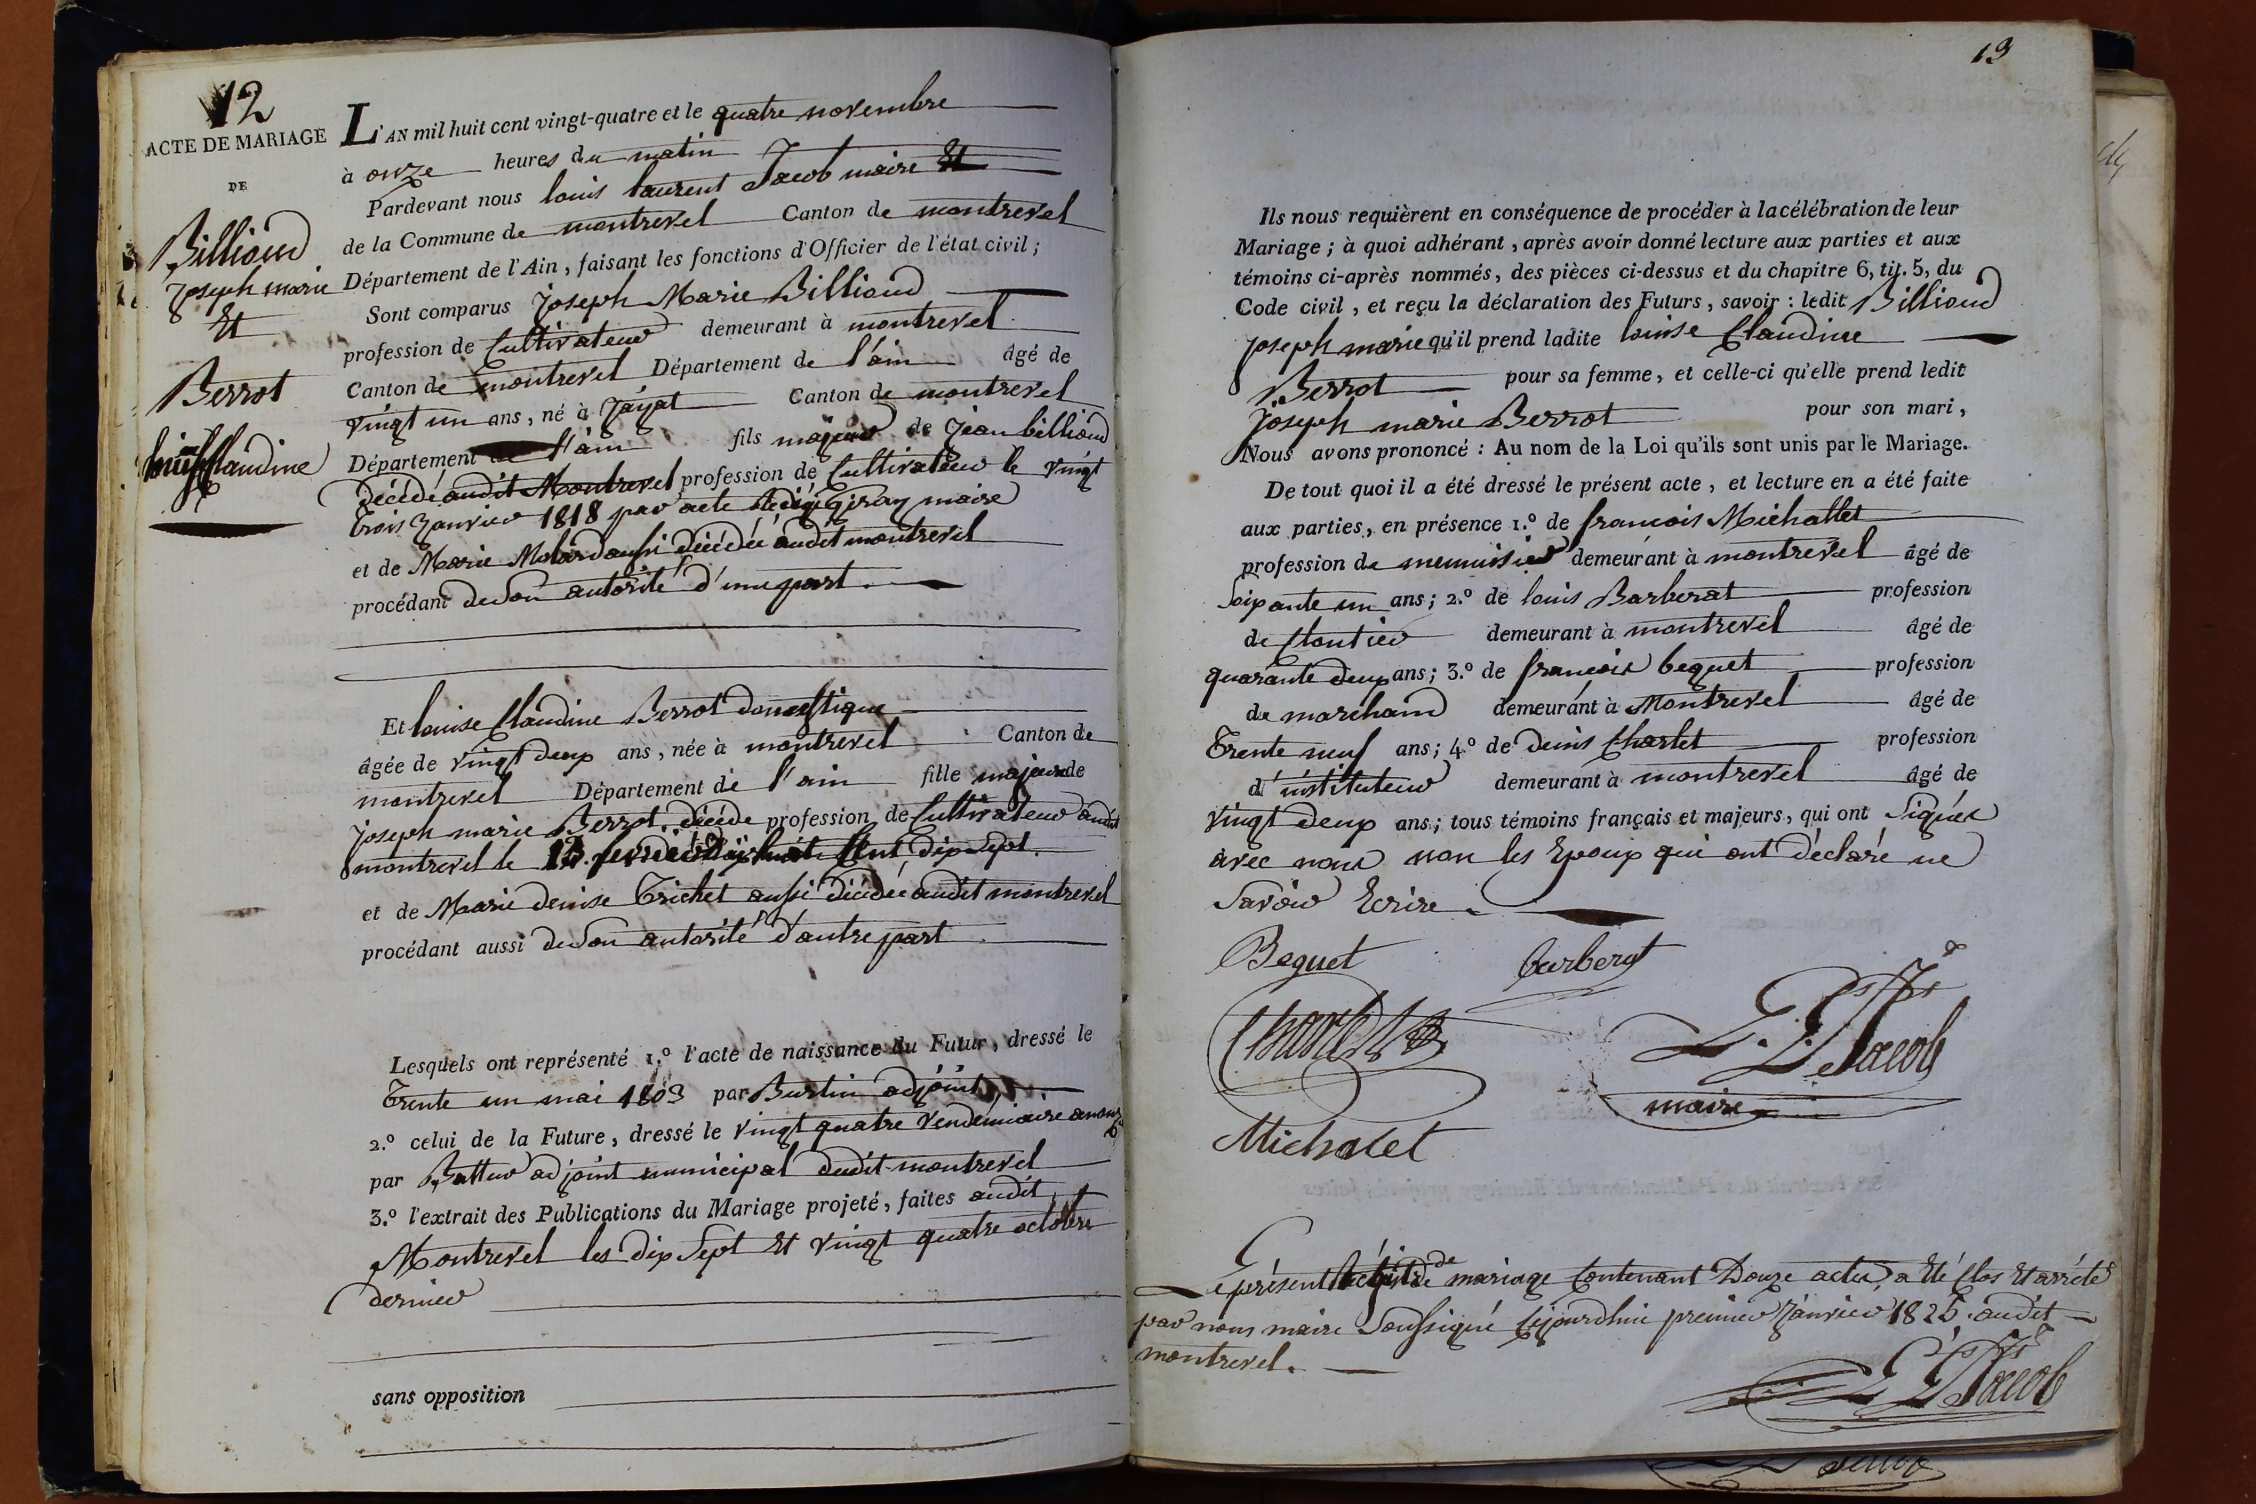 12
ACTE DE MARIAGE
DE
Billioud
Joseph marie
Et
Berrot
louise Claudine
L'AN mil huit cent vingt-quatre et le quatre novembre
à onze heures du matin
Pardevant nous louis laurent Jacob maire
de la Commune de montrevel Canton de montrevel
Département de l'Ain, faisant les fonctions d'Officier de l'état civil;
Sont comparus Joseph Marie Billioud
profession de Cultivateur demeurant à montrevel
Canton de montrevel Département de l'ain âgé de
vingt un ans, né à Jayat Canton de montrevel
Département de l'ain fils majeur de Jean billioud
décédé audit Montrevel profession de Cultivateur le vingt
trois Janvier 1818 par acte maire
et de Marie aussi décédée audit montrevel
procédant de Son autorité d'une part.
Et louise Claudine Berrot domestique
âgée de vingt deux ans, née à montrevel Canton de
montrevel Département de l'ain fille majeure de
joseph marie Berrot décédé profession de Cultivateur audit
montrevel le fevrier Cent dix Sept.
et de Marie denise Trichet aussi décédée audit montrevel
procédant aussi de Son autorité d'autre part
Lesquels ont représenté 1.º l'acte de naissance du Futur, dressé le
Trente un mai 1803 par Burtin adjoint
2.º celui de la Future, dressé le vingt quatre Vendemiaire an onze
par adjoint municipal dudit montrevel
3.º l'extrait des Publications du Mariage projeté, faites audit
Montrevel les dix Sept Et vingt quatre octobre
dernier
sans opposition
13
Ils nous requièrent en conséquence de procéder à la célébration de leur
Mariage; à quoi adhérant, après avoir donné lecture aux parties et aux
témoins ci-après nommés, des pièces ci-dessus et du chapitre 6, tit. 5, du
Code civil, et reçu la déclaration des Futurs, savoir: ledit Billioud
joseph marie qu'il prend ladite louise Claudine
Berrot pour sa femme, et celle-ci qu'elle prend ledit
Joseph marie Berrot pour son mari,
Nous avons prononcé: Au nom de la Loi qu'ils sont unis par le Mariage.
De tout quoi il a été dressé le présent acte, et lecture en a été faite
aux parties, en présence 1.º de francois Michallet
profession de menuisier demeurant à montrevel âgé de
Soixante un ans; 2.º de louis Barberat profession
de Cloutier demeurant à montrevel âgé de
quarante deux ans; 3.º de francois bequet profession
de marchand demeurant à Montrevel âgé de
Trente neuf ans; 4.º de denis Charlet profession
d'instituteur demeurant à montrevel âgé de
vingt deux ans; tous témoins français et majeurs, qui ont Signés
avec nous non les Epoux qui ont déclaré ne
Savoir Ecrire.
Bequet barberat
Charlet
L. L. Jacob
maire
Michalet
Le présent de mariage Contenant Douze actes a Eté Clos Et arrété
par nous maire Soussigné Cejourdhui premier Janvier 1825. audit
montrevel.
L L Jacob